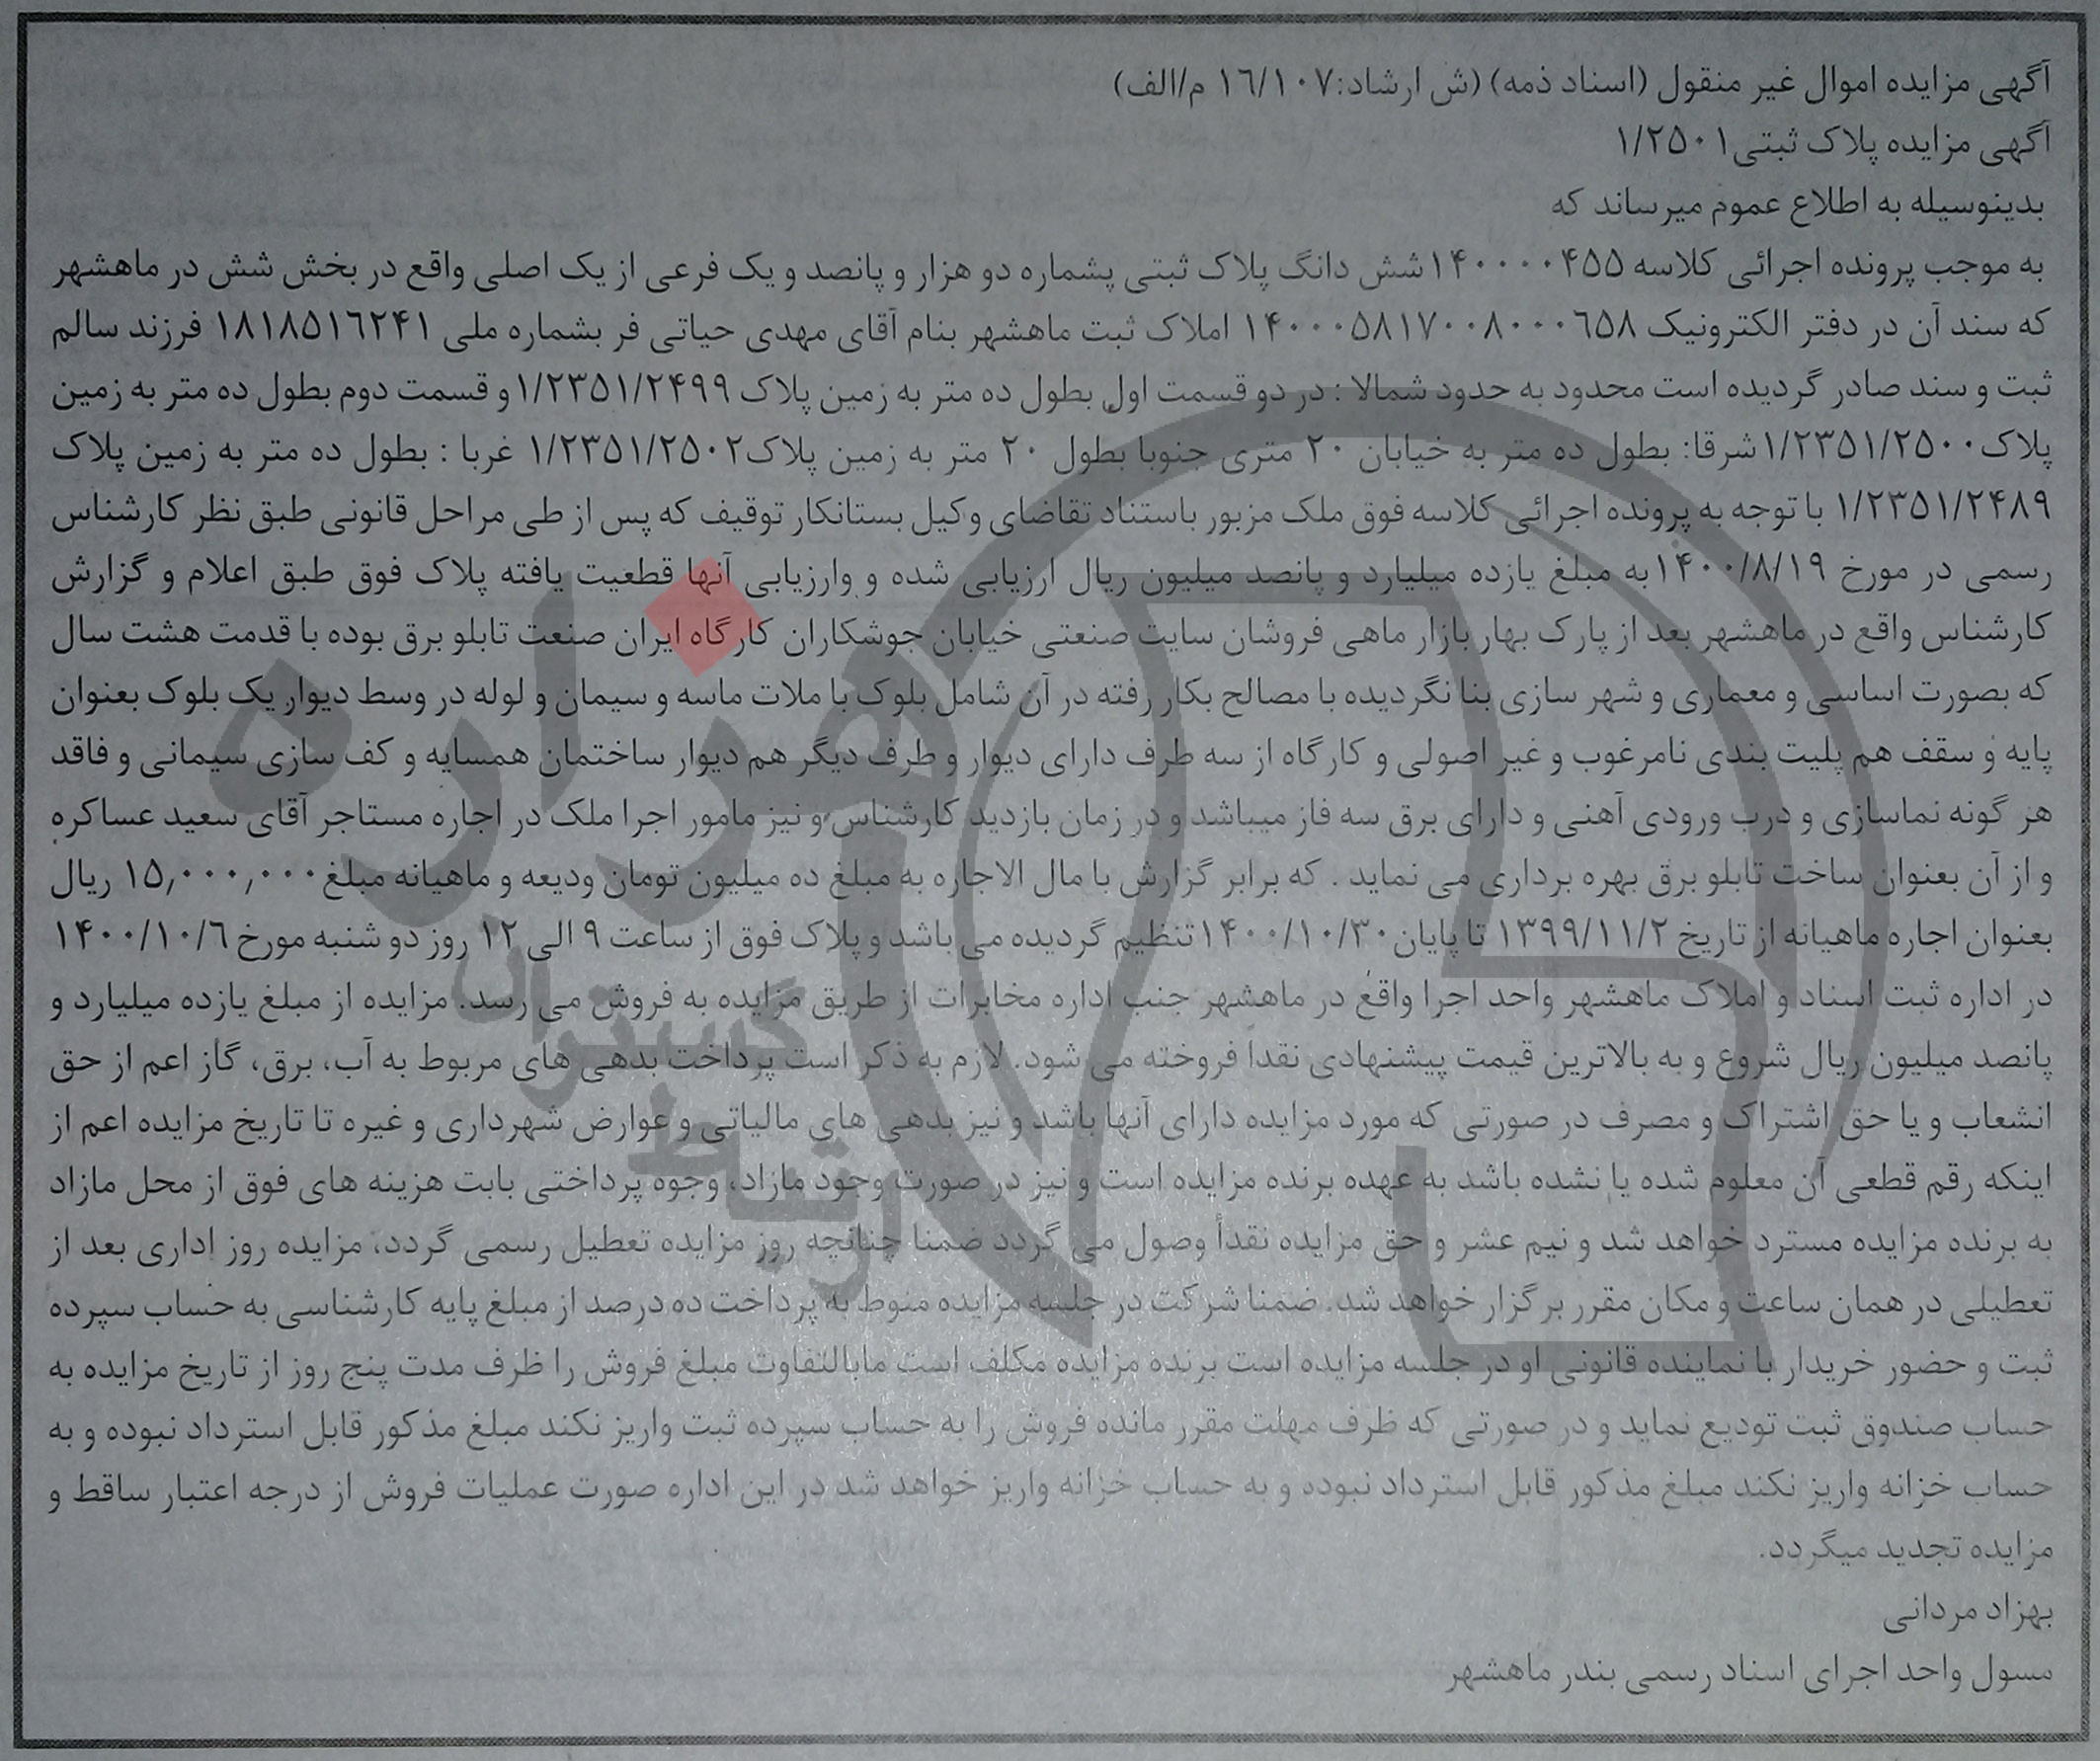 آگهی مزایده اموال غیر منقول (اسناد ذمه) (ش ارشاد:۱۶/۱۰۷ م/الف)
آگهی مزایده پلاک ثبتی۱/۲۵۰۱
بدینوسیله به اطلاع عموم میرساند که
به موجب پرونده اجرائی کلاسه ۱۴۰۰۰۰۴۵۵شش دانگ پلاک ثبتی پشماره دو هزار و پانصد و یک فرعی از یک اصلی واقع در بخش شش در ماهشهر
که سند آن در دفتر الکترونیک ۱۴۰۰۰۵۸۱۷۰۰۸۰۰۰۶۵۸ املاک ثبت ماهشهر بنام آقای مهدی حیاتی فر بشماره ملی ۱۸۱۸۵۱۶۲۴۱ فرزند سالم
ثبت و سند صادر گردیده است محدود به حدود شمالا : در دو قسمت اول بطول ده متر به زمین پلاک ۱/۲۳۵۱/۲۴۹۹و قسمت دوم بطول ده متر به زمین
پلاک۱/۲۳۵۱/۲۵۰۰شرقا: بطول ده متر به خیابان ۲۰ متری جنوبا بطول ۲۰ متر به زمین پلاک۱/۲۳۵۱/۲۵۰۲ غربا : بطول ده متر به زمین پلاک
۱/۲۳۵۱/۲۴۸۹ با توجه به پرونده اجرائی کلاسه فوق ملک مزبور باستناد تقاضای وکیل بستانکار توقیف که پس از طی مراحل قانونی طبق نظر کارشناس
رسمی در مورخ ۱۴۰۰/۸/۱۹به مبلغ یازده میلیارد و پانصد میلیون ریال ارزیابی شده و وارزیابی آنها قطعیت یافته پلاک فوق طبق اعلام و گزارش
کارشناس واقع در ماهشهر بعد از پارک بهار بازار ماهی فروشان سایت صنعتی خیابان جوشکاران کارگاه ایران صنعت تابلو برق بوده با قدمت هشت سال
که بصورت اساسی و معماری و شهر سازی بنا نگردیده با مصالح بکار رفته در آن شامل بلوک با ملات ماسه و سیمان و لوله در وسط دیوار یک بلوک بعنوان
پایه و سقف هم پلیت بندی نامرغوب و غیر اصولی و کارگاه از سه طرف دارای دیوار و طرف دیگر هم دیوار ساختمان همسایه و کف سازی سیمانی و فاقد
هر گونه نماسازی و درب ورودی آهنی و دارای برق سه فاز میباشد و در زمان بازدید کارشناس و نیز مامور اجرا ملک در اجاره مستاجر آقای سعید عساکره
و از آن بعنوان ساخت تابلو برق بهره برداری می نماید . که برابر گزارش با مال الاجاره به مبلغ ده میلیون تومان ودیعه و ماهیانه مبلغ۱۵,۰۰۰,۰۰۰ ریال
بعنوان اجاره ماهیانه از تاریخ ۱۳۹۹/۱۱/۲ تا پایان۱۴۰۰/۱۰/۳۰تنظیم گردیده می باشد و پلاک فوق از ساعت ۹ الی ۱۲ روز دو شنبه مورخ ۱۴۰۰/۱۰/۶
در اداره ثبت اسناد و املاک ماهشهر واحد اجرا واقع در ماهشهر جنب اداره مخابرات از طریق مزایده به فروش می رسد. مزایده از مبلغ یازده میلیارد و
پانصد میلیون ریال شروع و به بالاترین قیمت پیشنهادی نقدا فروخته می شود. لازم به ذکر است پرداخت بدهی های مربوط به آب، برق، گاز اعم از حق
انشعاب و یا حق اشتراک و مصرف در صورتی که مورد مزایده دارای آنها باشد و نیز بدهی های مالیاتی و عوارض شهرداری و غیره تا تاریخ مزایده اعم از
اینکه رقم قطعی آن معلوم شده یا نشده باشد به عهده برنده مزایده است و نیز در صورت وجود مازاد، وجوه پرداختی بابت هزینه های فوق از محل مازاد
به برنده مزایده مسترد خواهد شد و نیم عشر و حق مزایده نقدأ وصول می گردد ضمنا چنانچه روز مزایده تعطیل رسمی گردد، مزایده روز اداری بعد از
تعطیلی در همان ساعت و مکان مقرر برگزار خواهد شد. ضمنا شرکت در جلسه مزایده منوط به پرداخت ده درصد از مبلغ پایه کارشناسی به حساب سپرده
ثبت و حضور خریدار با نماینده قانونی او در جلسه مزایده است برنده مزایده مکلف است مابالتفاوت مبلغ فروش را ظرف مدت پنج روز از تاریخ مزایده به
حساب صندوق ثبت تودیع نماید و در صورتی که ظرف مهلت مقرر مانده فروش را به حساب سپرده ثبت واریز نکند مبلغ مذکور قابل استرداد نبوده و به
حساب خزانه واریز نکند مبلغ مذکور قابل استرداد نبوده و به حساب خزانه واریز خواهد شد در این اداره صورت عملیات فروش از درجه اعتبار ساقط و
مزایده تجدید میگردد.
بهزاد مردانی
مسول واحد اجرای اسناد رسمی بندر ماهشهر
هزاره
گسترش
ارتباط